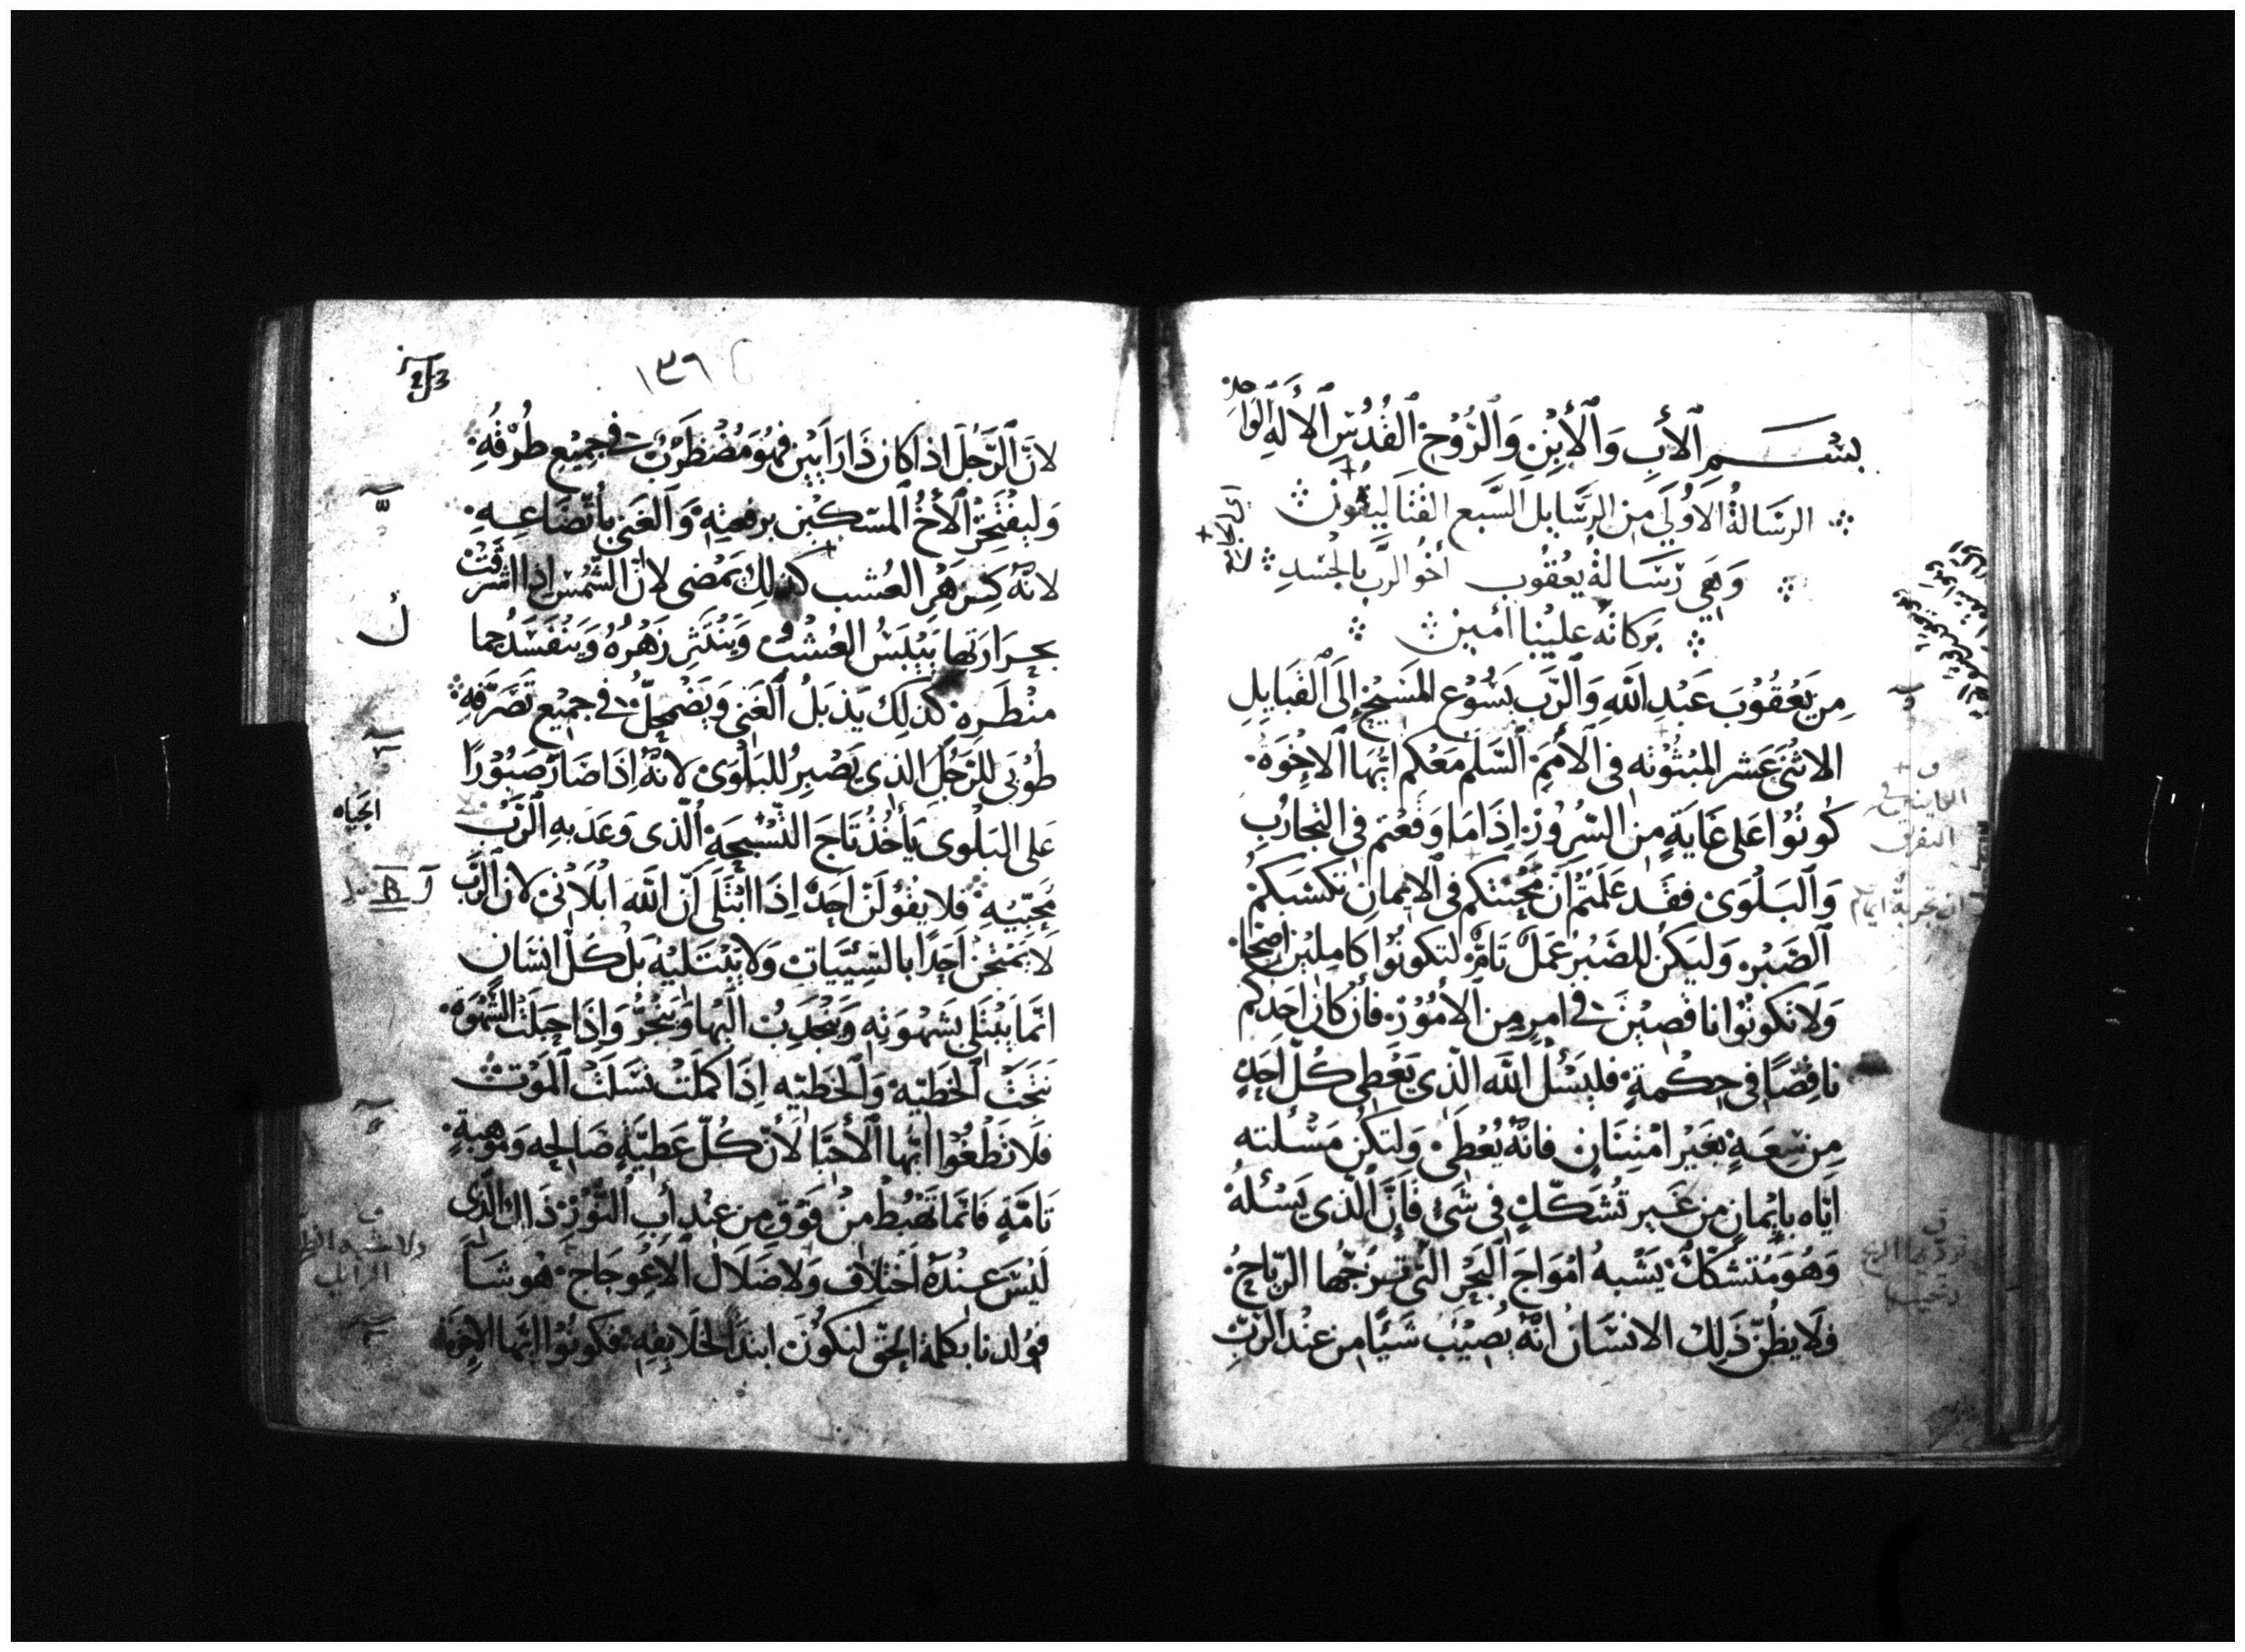 بسم الاب والابن والروح القدس الاله الواحد
الرسالة الاولي من الرسايل السبع القتاليقون
وهي رسالة يعقوب اخو الرب بالجسد
بركاته علينا امين
مِن يَعْقُوْبَ عَبْدِ اللهِ وَالرّبّ يَسُوْع المَسَيْحِ إِلَى القَبَايِلِ
الاثنَى عَشر المبثُوْثه في الأُممِ السّلم مَعْكم ايّهَا الاخْوَةُ
كُونُوُا عَلى غَايَةٍ مِن السّرُوْرِ اِذَا مَا وَقعْتم في التجَارُبِ
وَالبَلْوَى فقَد عَلمتُمْ اَن مْحْنتكم في الايمان تكسْبَكمْ
الصّبْر وَليَكُن للصَّبْر عَمَلٌ تَامٌ لتكونُوْا كاملِيْن اصحا
وَلَا تَكونُوْا ناقصِيْنَ في امرٍ مِن الأمُوْر فَأن كانَ احَدكم
ناقِصًا في حِكْمةٍ فليسْئل الله الّذي يَعْطى كُلّ احَدٍ
مِن سِعَةٍ بغَيْر امْتِنَانٍ فانّهُ يُعْطَى وَلتكن مَسْئلته
ايّاه بإيْمانٍ مِن غَير تُشَكّكٍ في شَئٍ فَإنَّ الّذي يَسْئلهُ
وَهُوَ مُتشكّكٌ يَشْبهُ امْوَاجَ البَحْر التي تزجّها الرّيَاحُ
فلَا يظُنّ ذَلِكَ الانسَان انّهُ يُصِيْبَ شَيًا مِن عنْد الرّبّ
١٣٦
لانّ الرَّجُلَ اذا كان ذَا رَايَيْن فهُوَ مُضْطرَبٌ في جمِيْع طُرْقُهِ
وَليفْتَخِرْ الأخُ المسْكِيْن برفعَتِه وَالغَني بأتّضَاعِهِ
لانّهُ كزهْرِ العُشب كذلِكَ يَمْضى لانّ الشّمْس اذا اشرَقتْ
بحرَارَتها يَيْبَسُ العُشْبُ وَينْتَثر زَهْرُهُ وَينفَسَدُ جما
منْظَرِه كذلِكَ يَذبَلُ الغَني وَيضْمَحِلّ في جمِيْع تَصَرّفهِ
طُوْبى للرّجُل الذي يَصْبرُ للبَلْوَى لانّهُ إِذَا صَارَ صَبُوْرًا
عَلى البَلْوى يَأخُذُ تَاجَ التّسْبحَة الّذى وَعَد به الرّبّ
الحياه
مُحبّيْهِ فلا يقُوْلَنّ احَدٌ اِذَا ابْتَلَى اَنّ اللّهَ ابْلَانى لان الرّبَّ
لَا يمتَحْن اَحَدًا بالسّيّيَات وَلا يَبْتَليْه بَلْ كلّ انسَان
انّمَا يَبْتَلى بشهْوَتِه وَينجَدِبُ اليْهَا وَينْجَرُّ وَاِذَا حبَلتْ الشّهْوَة
نتجَتْ الخَطيّة وَالخَطيّه اِذَا كمَلَتْ نسَلَتْ الموْت
فلَا تطْغُوْا ايّها الأحبّا لأنّ كلّ عَطيّةٍ صَالِحه وَمَوْهبةٍ
تَامّةٍ فَانّما تَهْبُط منْ فَوْق مِن عنْدِ أبِ النّوْر ذَاك الذي
لَيْسَ عنْدَهُ اختِلَاف وَلا ضَلال الاعْوجَاج هُو شَا
فوُلدنا بكلمة الحَق لنكُوْن ابتدا لخَلايقِهِ فكُوْنُوْا ايّها الاخْوة